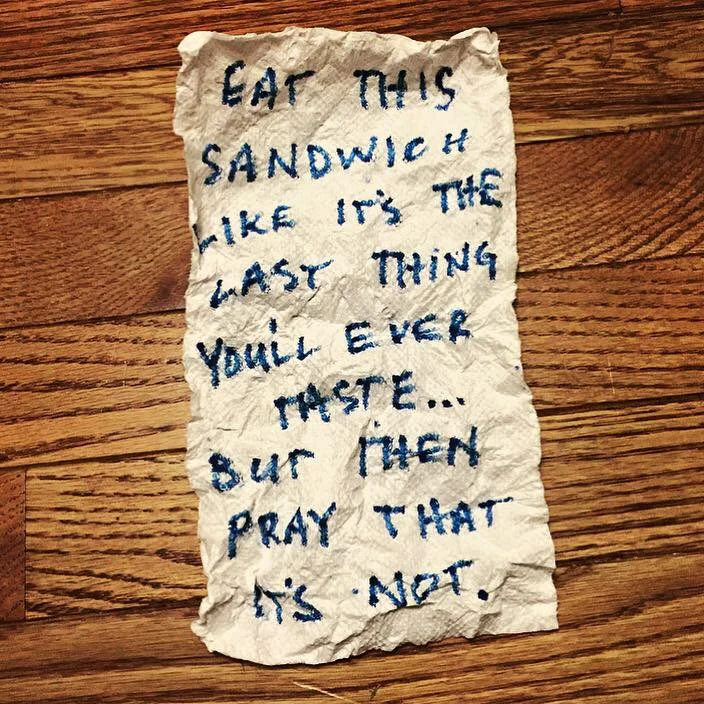 EAT THIS
SANDWICH
LIKE IT'S THE
LAST THING
YOU'LL EVER
TASTE...
BUT THEN
PRAY THAT
IT'S NOT.